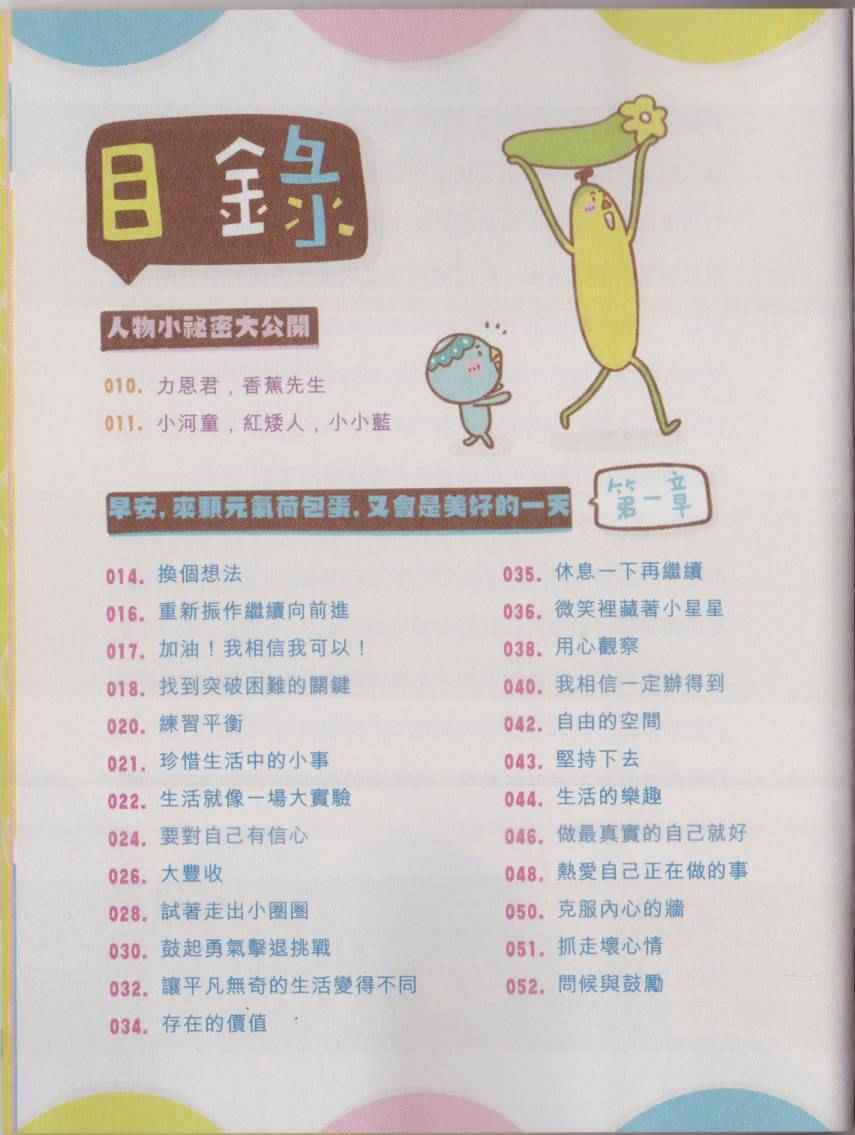 目 錄
人物小祕密大公開
010. 力恩君，香蕉先生
011. 小河童，紅矮人，小小藍
早安，來顆元氣荷包蛋，又會是美好的一天
第一章
014. 換個想法
016. 重新振作繼續向前進
017. 加油！我相信我可以！
018. 找到突破困難的關鍵
020. 練習平衡
021. 珍惜生活中的小事
022. 生活就像一場大實驗
024. 要對自己有信心
026. 大豐收
028. 試著走出小圈圈
030. 鼓起勇氣擊退挑戰
032. 讓平凡無奇的生活變得不同
034. 存在的價值
035. 休息一下再繼續
036. 微笑裡藏著小星星
038. 用心觀察
040. 我相信一定辦得到
042. 自由的空間
043. 堅持下去
044. 生活的樂趣
046. 做最真實的自己就好
048. 熱愛自己正在做的事
050. 克服內心的牆
051. 抓走壞心情
052. 問候與鼓勵